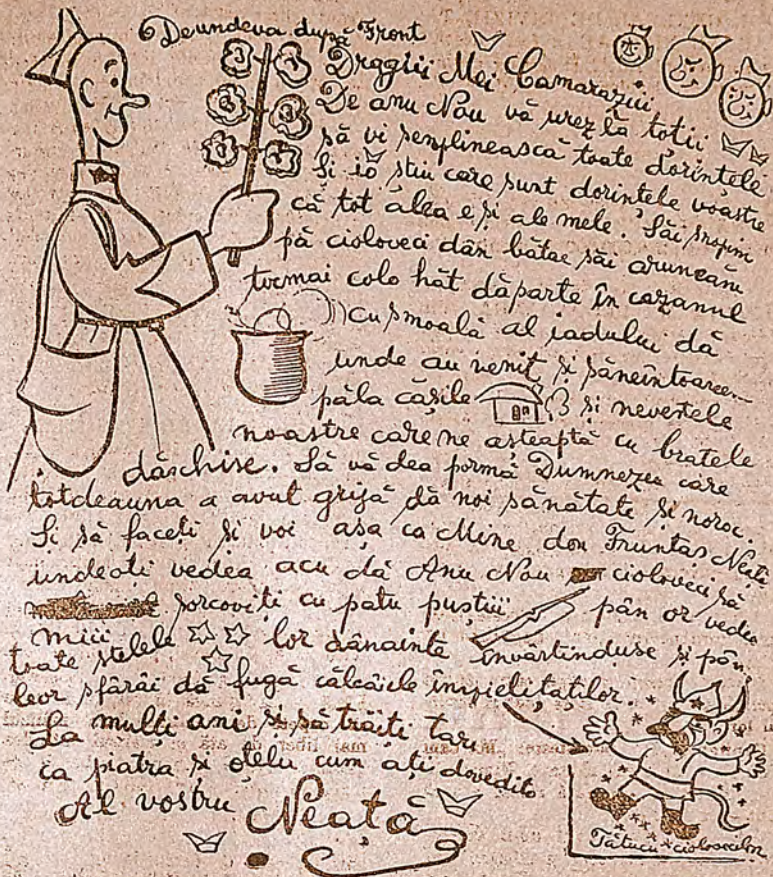 Deundeva după Front
Dragiii Mei Camaraziii
De anu Nou vă urez la toții
să vi senplinească toate dorințele
Și io știu care sunt dorințele voastre
că tot ălea e și ale mele. Săi snopim
pă cioloveci dân bătae săi aruncăm
tocmai colo hăt dăparte în cazanul
cu smoală al iadului dă
unde au venit și săneîntoarcem
păla căsile și nevestele
noastre care ne așteaptă cu brațele
dăschise. Să vă dea pormă Dumnezeu care
totdeauna a avut grijă dă noi sănătate și noroc.
Și să faceți și voi așa ca Mine don Fruntaș Neață
undeoți vedea acu dă Anu Nou cioloveci să
miii sorcoviți cu patu puștiii pân or vedea
toate stelele lor dânainte învârtinduse și pân
leor sfârâi dă fugă călcâiele împielițaților.
La mulți ani și să trăiți tari
ca piatra și oțelu cum ați dovedito
Al vostru Neață
Tătucu ciolovecilor